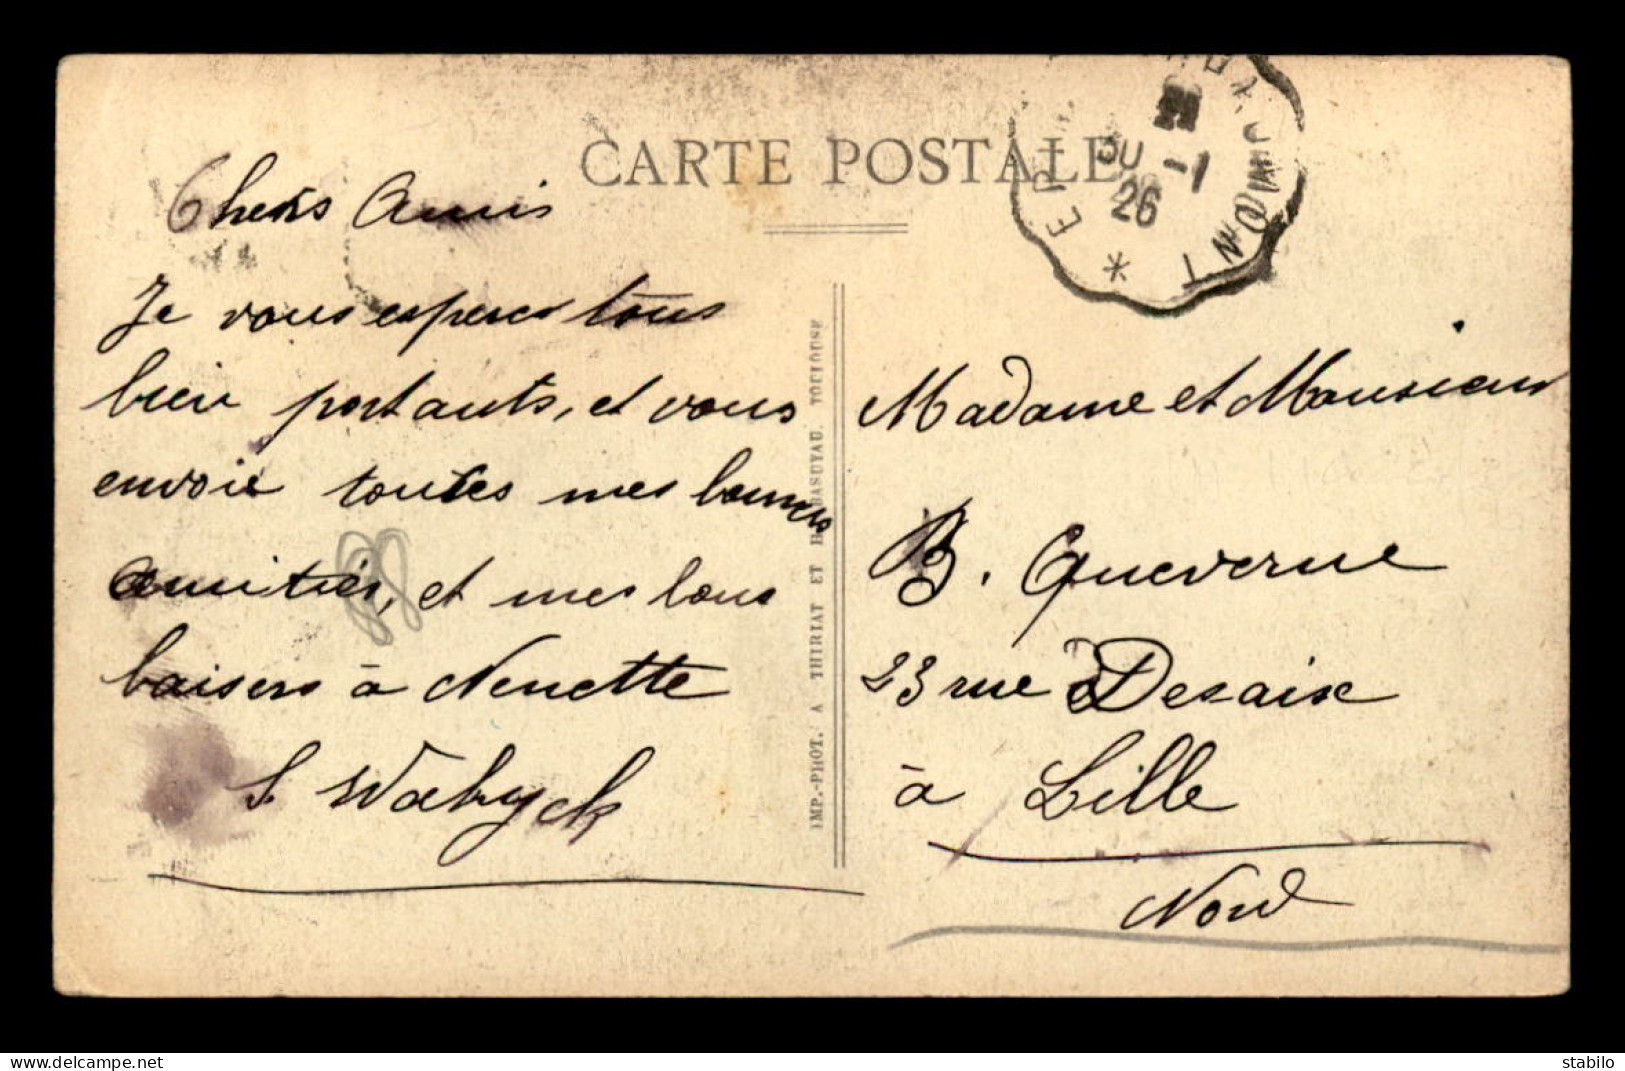 CARTE POSTALE
Chers Amis
Je vous esperes tous
bien portants, et vous
envoie toutes mes bonnes
amitiés, et mes bons
baisers à Nenette
S. Wabyck
IMP.-PHOT. A THIRIAT ET BASUYAU TOULOUSE
26
-1
Madame et Monsieur
B. Queverne
23 rue Desaix
à Lille
Nord
stabilo